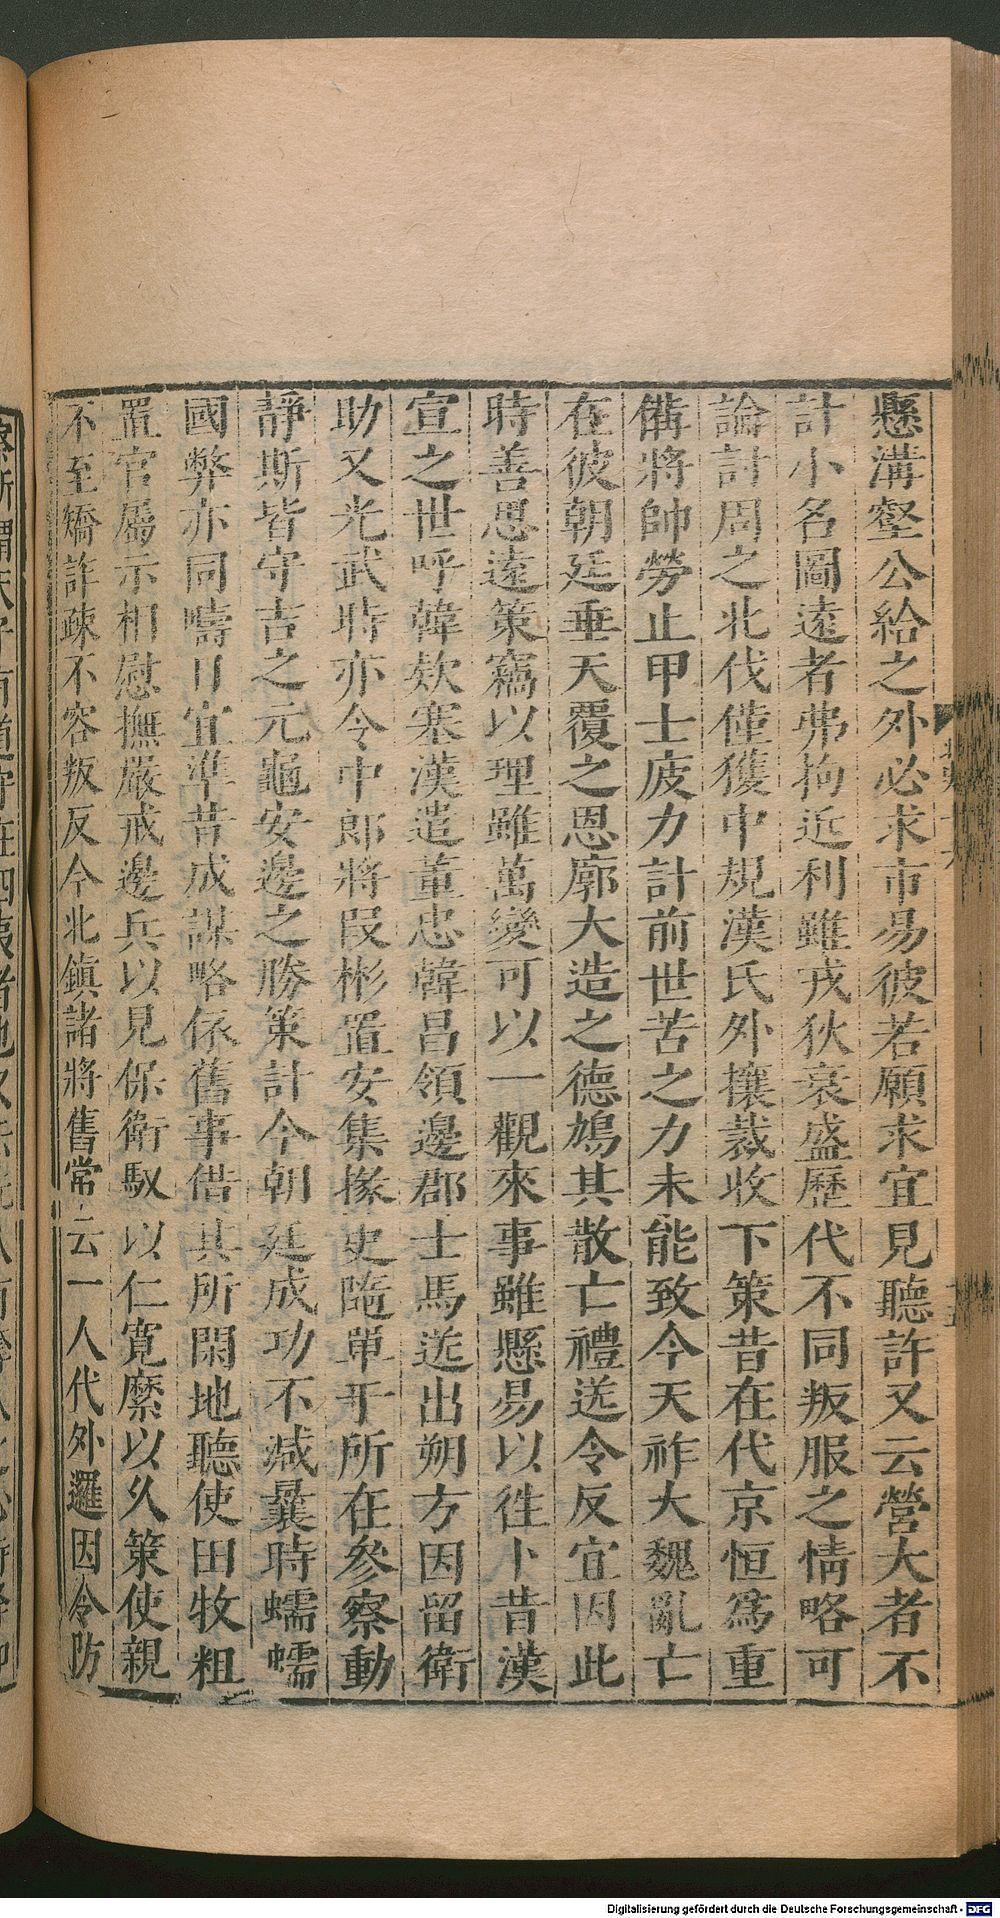 懸溝壑公給之外必求市易彼若願求宜見聽許又云營大者不
計小名圖遠者弗拘近利雖戎狄衰盛歷代不同叛服之情略可
論討周之北伐僅獲中規漢氏外攘裁收下策昔在代京恒爲重
備將帥勞止甲士疲力計前世苦之力未能致今天祚大魏亂亡
在彼朝廷垂天覆之恩廓大造之德鳩其散亡禮送令反宜因此
時善思遠策竊以理雖萬變可以一觀來事雖懸易以徃卜昔漢
宣之世呼韓欵塞漢遣董忠韓昌領邊郡士馬送出朔方因留衛
助又光武時亦令中郎將叚彬置安集掾史隨單于所在參察動
靜斯皆守吉之元龜安邊之勝策計今朝廷成功不减曩時蠕蠕
國弊亦同疇日宜準昔成謀略依舊事借其所閑地聽使田牧粗
置官屬示相慰撫嚴戒邊兵以見保衛馭以仁寛縻以久策使親
不至矯許疎不容叛反今北鎮諸將舊常云一人代外邏因令防
Digitalisierung gefördert durch die Deutsche Forschungsgemeinschaft - DFG